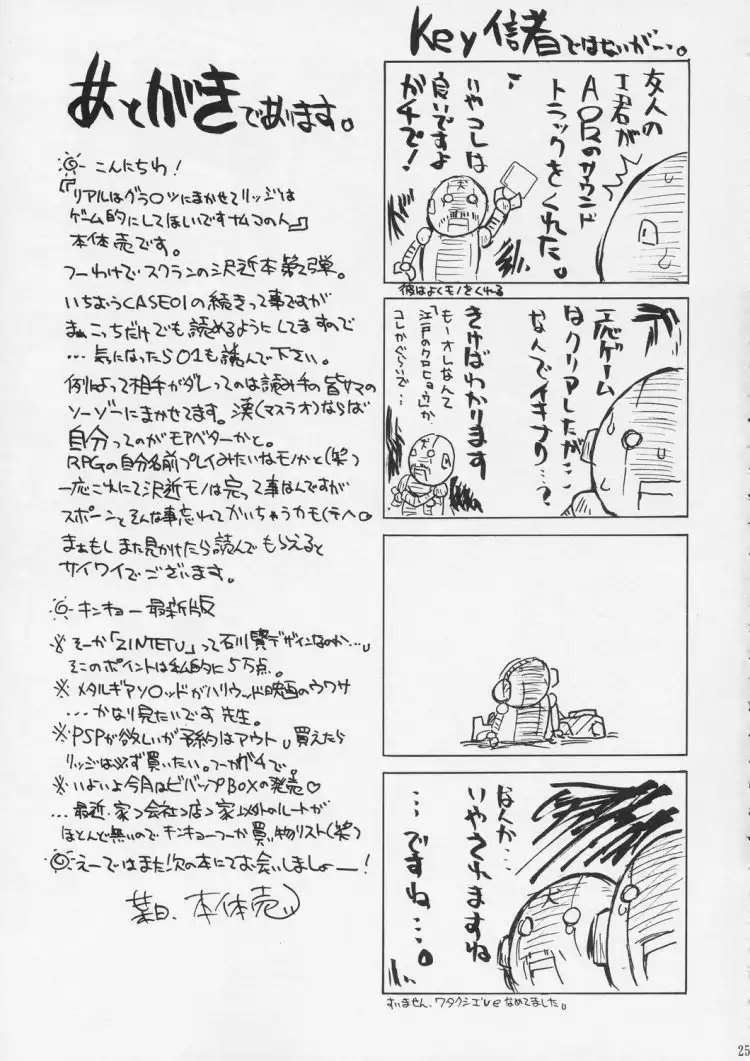 Key信者ではないが…。
友人の
I君が
AIRのサウンド
トラックをくれた。
いやコレは
良いですよ
ガチで!
彼はよくモノをくれる
ゲーム
はクリアしたが…
なんでイキナリ…?
きけばわかります
もーオレなんて
「江戸のクロヒョウ」か
コレかぐらいで…
なんか…
いやされますね
…ですね…。
すいません、ワタクシエしveなめてました。
あとがきであります。
こんにちわ!
『リアルはグラ〇ツにまかせてリッジは
ゲーム的にしてほしいですナムコのん』
本体売です。
つーわけでスクランの沢近本第2弾。
いちおうCASE01の続きって事ですが
まぁこっちだけでも読めるようにしてますので
…気になったら01も読んで下さい。
例によって相手がダレってのは読み手の皆サマの
ソーゾーにまかせてます。漢(マスラオ)ならば
自分ってのがモアベターかと。
RPGの自分名前プレイみたいなモノかと(笑)
一応これにて沢近モノは完って事なんですが
スポーンとそんな事忘れてかいちゃうカモ(テヘ。
まぁもしまた見かけたら読んでもらえると
サイワイでございます。
キンキョー最新版
※そーか「ZINTETU」って石川賢デザインなのか…。
そこのポイントは私的に5万点。
※メタルギアソ〇ッドがハリウッド映画のウワサ
…かなり見たいです先生。
※PSPが欲しいが予約はアウト。買えたら
リッジは必ず買いたい。つーかガチで。
※いよいよ今月はビバップBOXの発売♡
…最近、家→会社→店→家以外のルートが
ほとんど無いのでキンキョーつーか買い物リスト(笑)
えーではまた!次の本にてお会いしましょー!
葉月、本体売
25